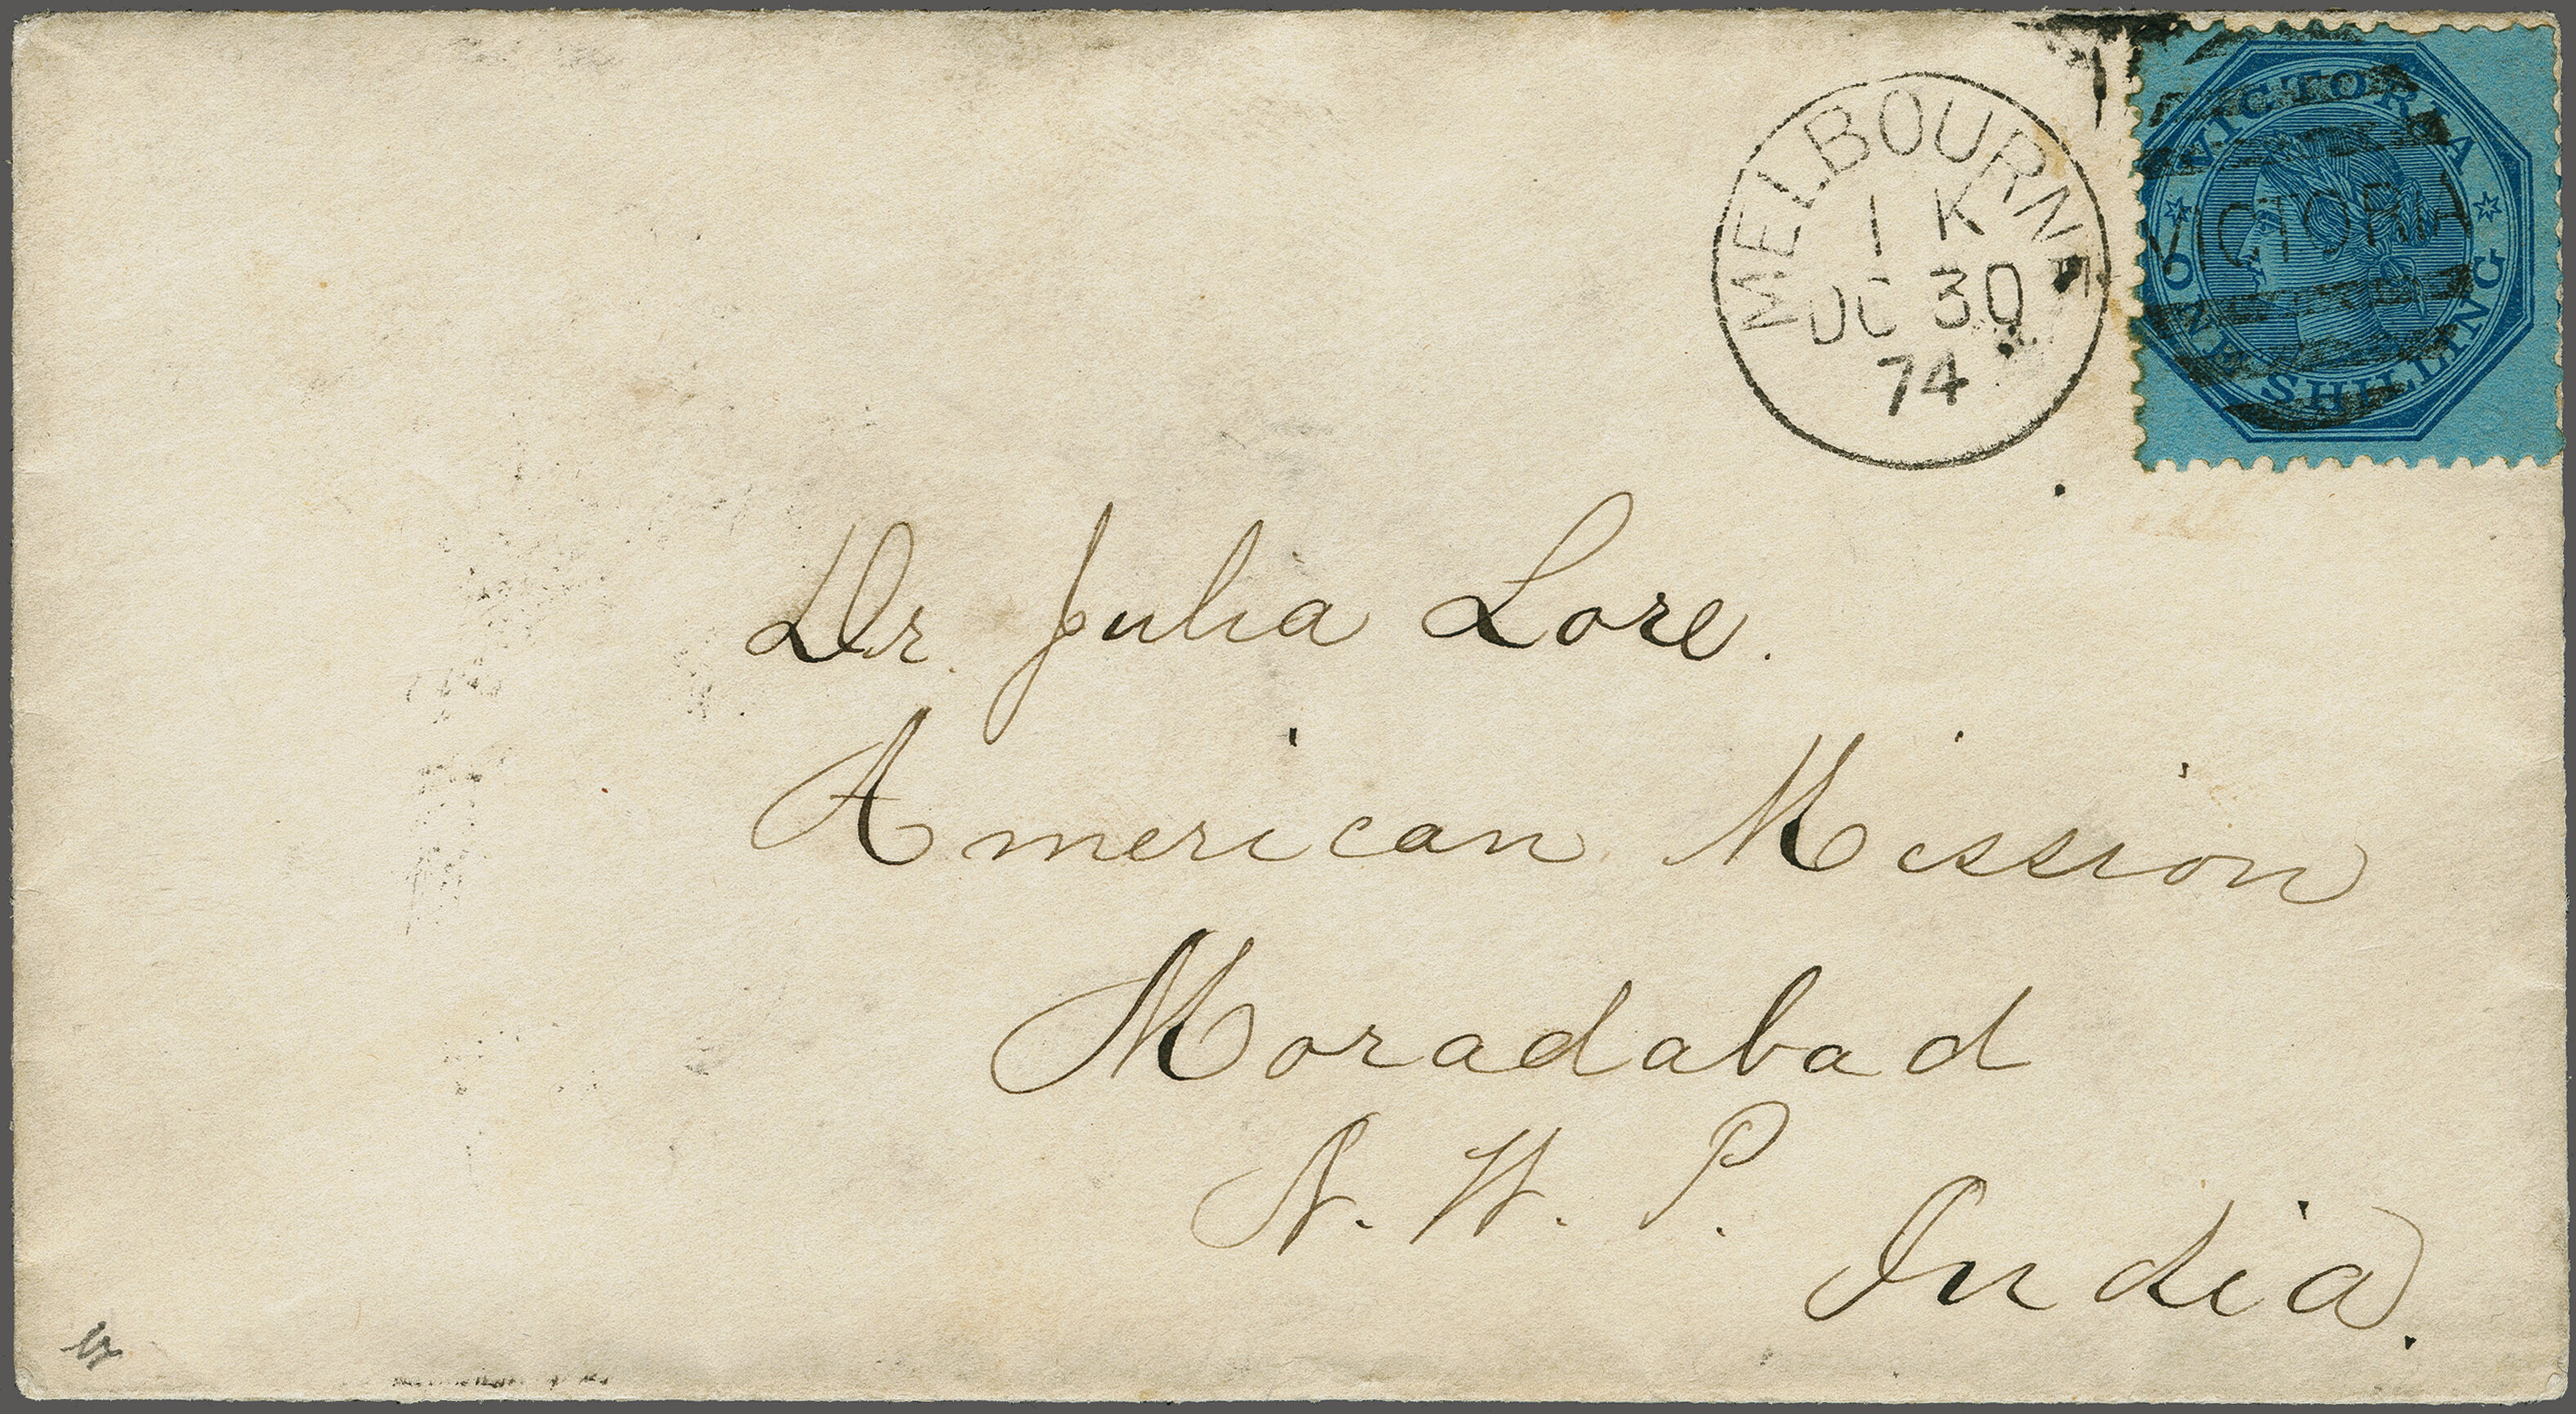 MELBOURNE
1 K
OC 30
74
VICTORIA
VICTORIA
ONE SHILLING
Dr. Julia Lore.
American Mission
Moradabad
N. W. P.
India.